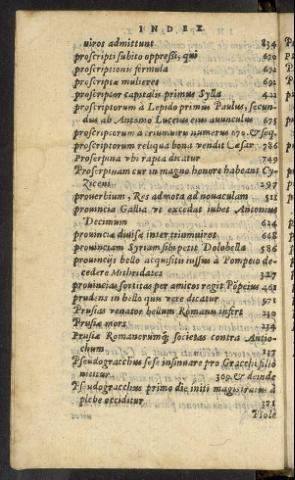 INDEX
uiros admittunt 834
proscripti subito oppreßi, qui 670
proscriptionis formula 672
proscriptæ mulieres 692
proscriptor capitalis primus Sylla 422
proscriptorum à Lepido primus Paulus, secun-
dus ab Antonio Lucius eius auunculus 675
proscriptorum à triumuiris numerus 670. & seq.
proscriptorum reliqua bona vendit Cæsar 786
Proserpina vbi rapta dicatur 749
Proserpinam cur in magno honore habeant Cy-
ziceni 297
prouerbium, Res admota ad nouaculam 511
prouincia Gallia vt excedat iubet Antonius
Decimum 614
prouinciæ diuisæ inter triumuiros 668
prouinciam Syriam sibi petit Dolobella 586
prouincijs bello acquisitis iussus à Pompeio de-
cedere Mithridates 327
prouincias sortitas per amicos regit Põpeius 461
prudens in bello qui vere dicatur 571
Prusias venator bellum Romanis infert 230
Prusiæ mors 234
Prusiæ Romanorumq; societas contra Antio-
chum 137
Pseudogracchus sese insinuare pro Gracchi filio
nititur 369. & deinde
Pseudogracchus primo die initi magistratus à
plebe occiditur 371
Ptole